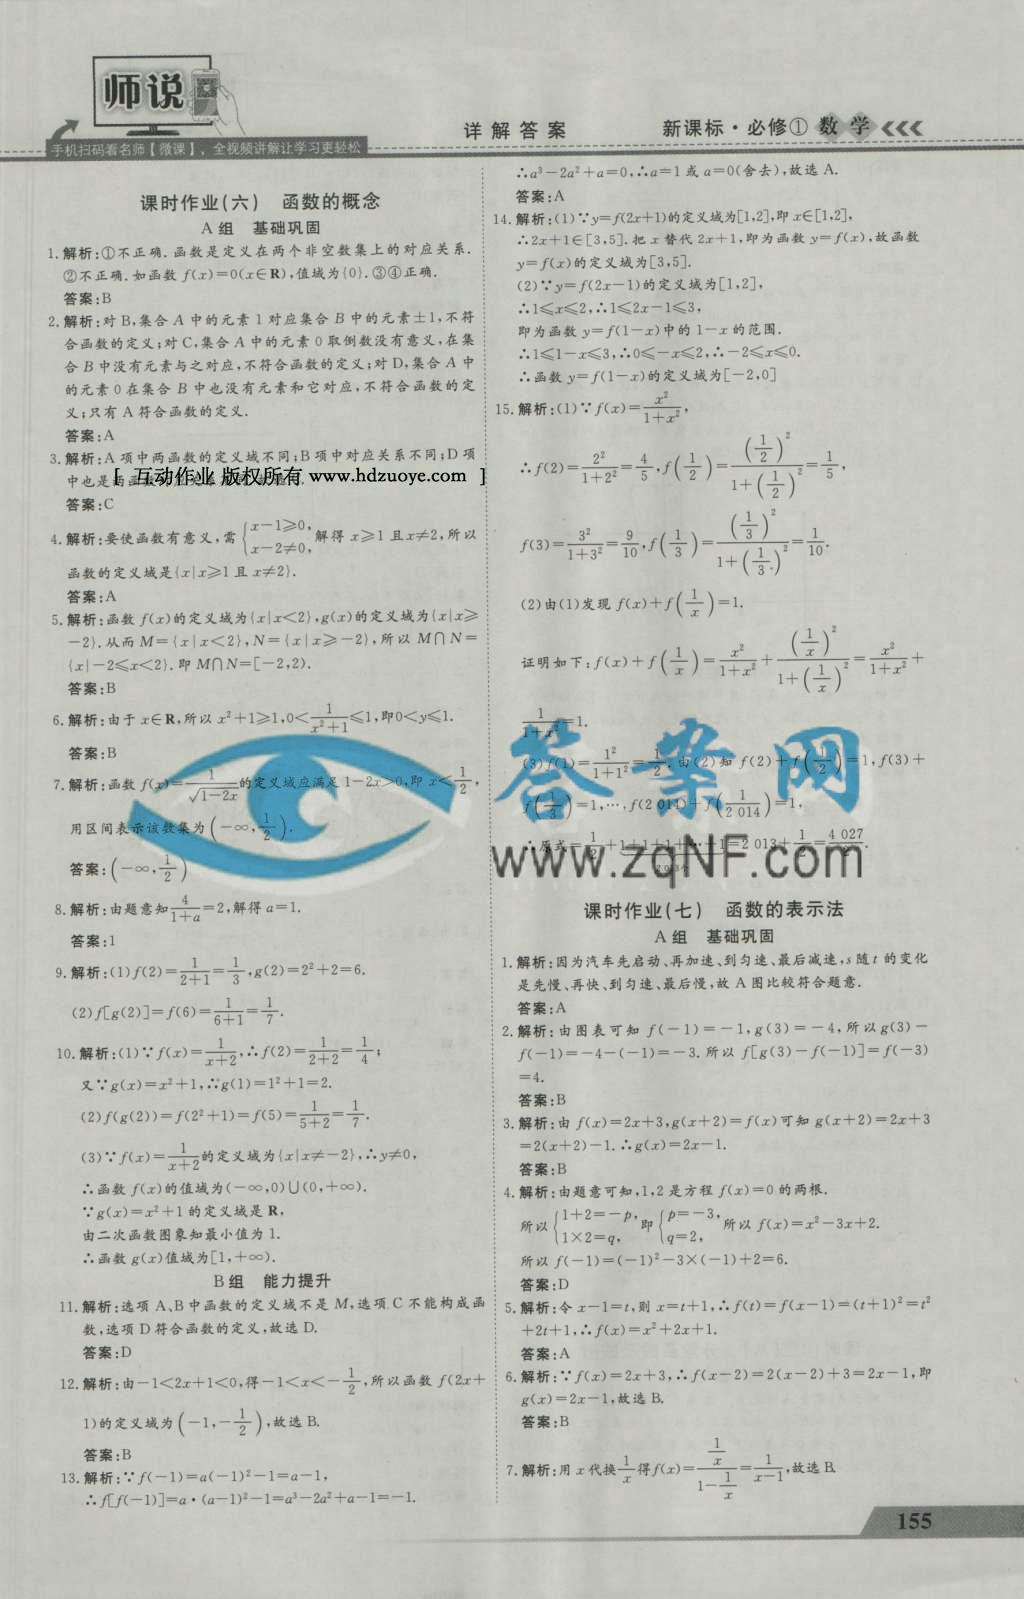 师说
手机扫码看名师【微课】，全视频讲解让学习更轻松
详解答案
新课标·必修① 数学
课时作业(六) 函数的概念
A组 基础巩固
1.解析:①不正确.函数是定义在两个非空数集上的对应关系.
②不正确.如函数 f(x)=0(x∈R),值域为{0}.③④正确.
答案:B
2.解析:对B,集合A中的元素1对应集合B中的元素±1,不符
合函数的定义;对C,集合A中的元素0取倒数没有意义,在集
合B中没有元素与之对应,不符合函数的定义;对D,集合A中
的元素0在集合B中也没有元素和它对应,不符合函数的定
义;只有A符合函数的定义.
答案:A
3.解析:A项中两函数的定义域不同;B项中对应关系不同;D项
[ 互动作业 版权所有 www.hdzuoye.com ]
中也是两函数
答案:C
4.解析:要使函数有意义,需{x-1≥0, x-2≠0, 解得x≥1且x≠2,所以
函数的定义域是{x|x≥1且x≠2}.
答案:A
5.解析:函数f(x)的定义域为{x|x<2},g(x)的定义域为{x|x≥
-2}.从而M={x|x<2},N={x|x≥-2},所以M∩N=
{x|-2≤x<2}.即M∩N=[-2,2).
答案:B
6.解析:由于x∈R,所以x²+1≥1,0<1/(x²+1)≤1,即0<y≤1.
答案:B
7.解析:函数f(x)=1/√(1-2x)的定义域应满足1-2x>0,即x<1/2,
用区间表示该数集为(-∞,1/2).
答案:(-∞,1/2)
8.解析:由题意知4/(1+a)=2,解得a=1.
答案:1
9.解析:(1)f(2)=1/(2+1)=1/3,g(2)=2²+2=6.
(2)f[g(2)]=f(6)=1/(6+1)=1/7.
10.解析:(1)∵f(x)=1/(x+2),∴f(2)=1/(2+2)=1/4;
又∵g(x)=x²+1,∴g(1)=1²+1=2.
(2)f(g(2))=f(2²+1)=f(5)=1/(5+2)=1/7.
(3)∵f(x)=1/(x+2)的定义域为{x|x≠-2},∴y≠0,
∴函数f(x)的值域为(-∞,0)∪(0,+∞).
∵g(x)=x²+1的定义域是R,
由二次函数图象知最小值为1.
∴函数g(x)值域为[1,+∞).
B组 能力提升
11.解析:选项A、B中函数的定义域不是M,选项C不能构成函
数,选项D符合函数的定义,故选D.
答案:D
12.解析:由-1<2x+1<0,得-1<x<-1/2,所以函数f(2x+
1)的定义域为(-1,-1/2),故选B.
答案:B
13.解析:∵f(-1)=a(-1)²-1=a-1,
∴f[f(-1)]=a·(a-1)²-1=a³-2a²+a-1=-1.
∴a³-2a²+a=0,∴a=1或a=0(舍去),故选A.
答案:A
14.解析:(1)∵y=f(2x+1)的定义域为[1,2],即x∈[1,2],
∴2x+1∈[3,5].把x替代2x+1,即为函数y=f(x),故函数
y=f(x)的定义域为[3,5].
(2)∵y=f(2x-1)的定义域为[1,2],
∴1≤x≤2,∴1≤2x-1≤3,
即为函数y=f(1-x)中的1-x的范围.
∴1≤1-x≤3,∴0≤-x≤2,∴-2≤x≤0.
∴函数y=f(1-x)的定义域为[-2,0]
15.解析:(1)∵f(x)=x²/(1+x²),
∴f(2)=2²/(1+2²)=4/5,f(1/2)=(1/2)²/(1+(1/2)²)=1/5,
f(3)=3²/(1+3²)=9/10,f(1/3)=(1/3)²/(1+(1/3)²)=1/10.
(2)由(1)发现f(x)+f(1/x)=1.
证明如下:f(x)+f(1/x)=x²/(1+x²)+(1/x)²/(1+(1/x)²)=x²/(1+x²)+
1/(1+x²)=1.
(3)f(1)=1²/(1+1²)=1/2.由(2)知f(2)+f(1/2)=1,f(3)+
f(1/3)=1,…,f(2 014)+f(1/2 014)=1,
∴原式=1/2+1+1+1+…+1=2 013+1/2=4 027/2.
答案网
www.zqNF.com
课时作业(七) 函数的表示法
A组 基础巩固
1.解析:因为汽车先启动、再加速、到匀速、最后减速,s随t的变化
是先慢、再快、到匀速、最后慢,故A图比较符合题意.
答案:A
2.解析:由图表可知f(-1)=-1,g(3)=-4,所以g(3)-
f(-1)=-4-(-1)=-3.所以f[g(3)-f(-1)]=f(-3)
=4.
答案:B
3.解析:由f(x)=2x+3,g(x+2)=f(x)可知g(x+2)=2x+3
=2(x+2)-1.∴g(x)=2x-1.
答案:B
4.解析:由题意可知,1,2是方程f(x)=0的两根.
所以{1+2=-p, 1×2=q, 即{p=-3, q=2, 所以f(x)=x²-3x+2.
所以f(-1)=(-1)²-3×(-1)+2=6.
答案:D
5.解析:令x-1=t,则x=t+1,∴f(t)=f(x-1)=(t+1)²=t²
+2t+1,∴f(x)=x²+2x+1.
答案:A
6.解析:∵f(x)=2x+3,∴f(x-2)=2(x-2)+3=2x-1,即
g(x)=2x-1,故选B.
答案:B
7.解析:用x代换1/x得f(x)=(1/x)/(1-1/x)=1/(x-1),故选B.
155